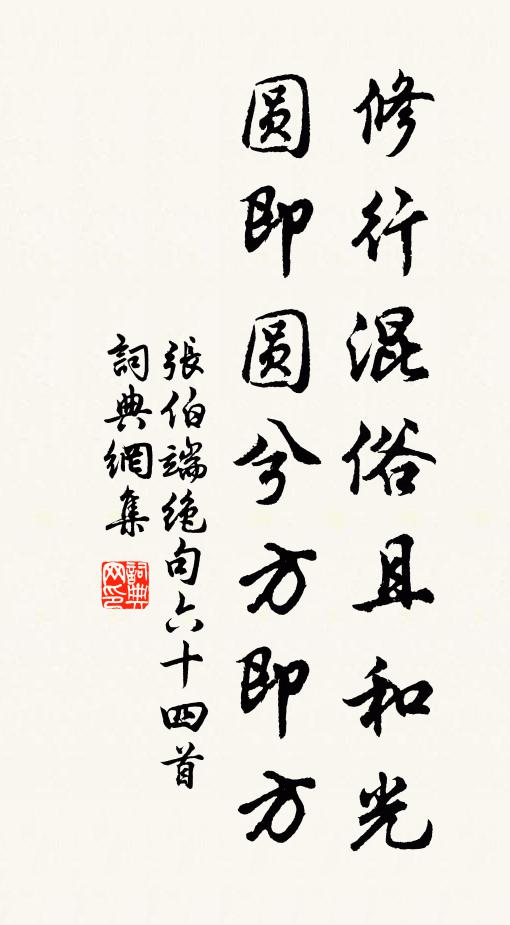 修行混俗且和光
圆即圆兮方即方
張伯端絶句六十四首
詞典網集
詞典网印